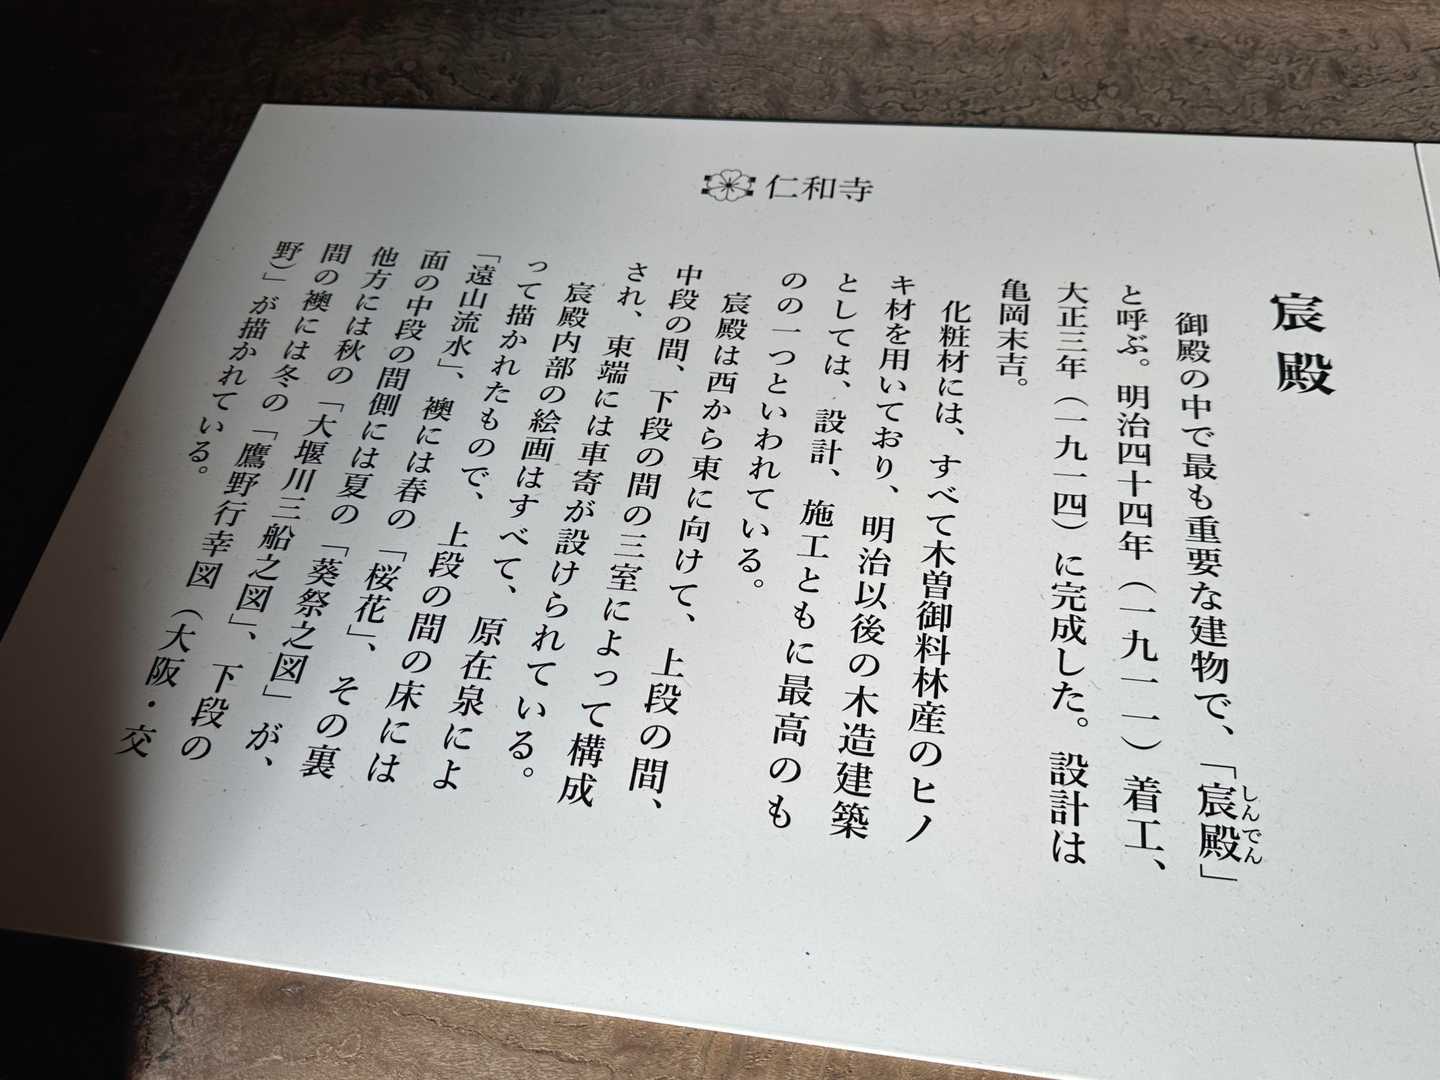 宸殿
御殿の中で最も重要な建物で、「宸殿しんでん」
と呼ぶ。明治四十四年（一九一一）着工、
大正三年（一九一四）に完成した。設計は
亀岡末吉。
化粧材には、すべて木曽御料林産のヒノ
キ材を用いており、明治以後の木造建築
としては、設計、施工ともに最高のも
のの一つといわれている。
宸殿は西から東に向けて、上段の間、
中段の間、下段の間の三室によって構成
され、東端には車寄が設けられている。
宸殿内部の絵画はすべて、原在泉によ
って描かれたもので、上段の間の床には
「遠山流水」、襖には春の「桜花」、その裏
面の中段の間側には夏の「葵祭之図」が、
他方には秋の「大堰川三船之図」、下段の
間の襖には冬の「鷹野行幸図（大阪・交
野）」が描かれている。
仁和寺